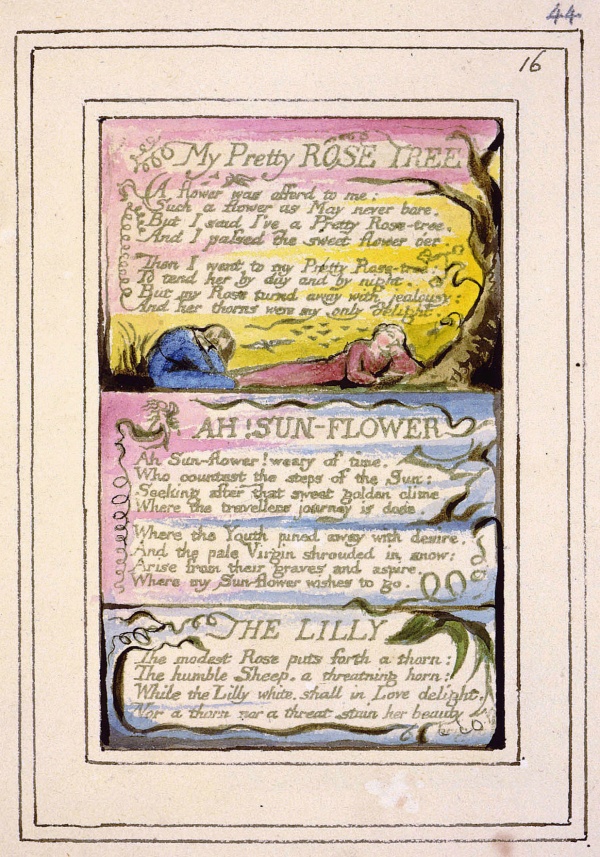 44.
16
My Pretty ROSE TREE
A flower was offerd to me:
Such a flower as May never bore.
But I said I've a Pretty Rose-tree.
And I passed the sweet flower oer.
Then I went to my Pretty Rose-tree:
To tend her by day and by night.
But my Rose turnd away with jealousy:
And her thorns were my only delight.
AH! SUN-FLOWER
Ah Sun-flower! weary of time.
Who countest the steps of the Sun:
Seeking after that sweet golden clime
Where the travellers journey is done.
Where the Youth pined away with desire,
And the pale Virgin shrouded in snow:
Arise from their graves and aspire,
Where my Sun-flower wishes to go.
THE LILLY
The modest Rose puts forth a thorn:
The humble Sheep, a threatning horn:
While the Lilly white, shall in Love delight,
Nor a thorn nor a threat stain her beauty